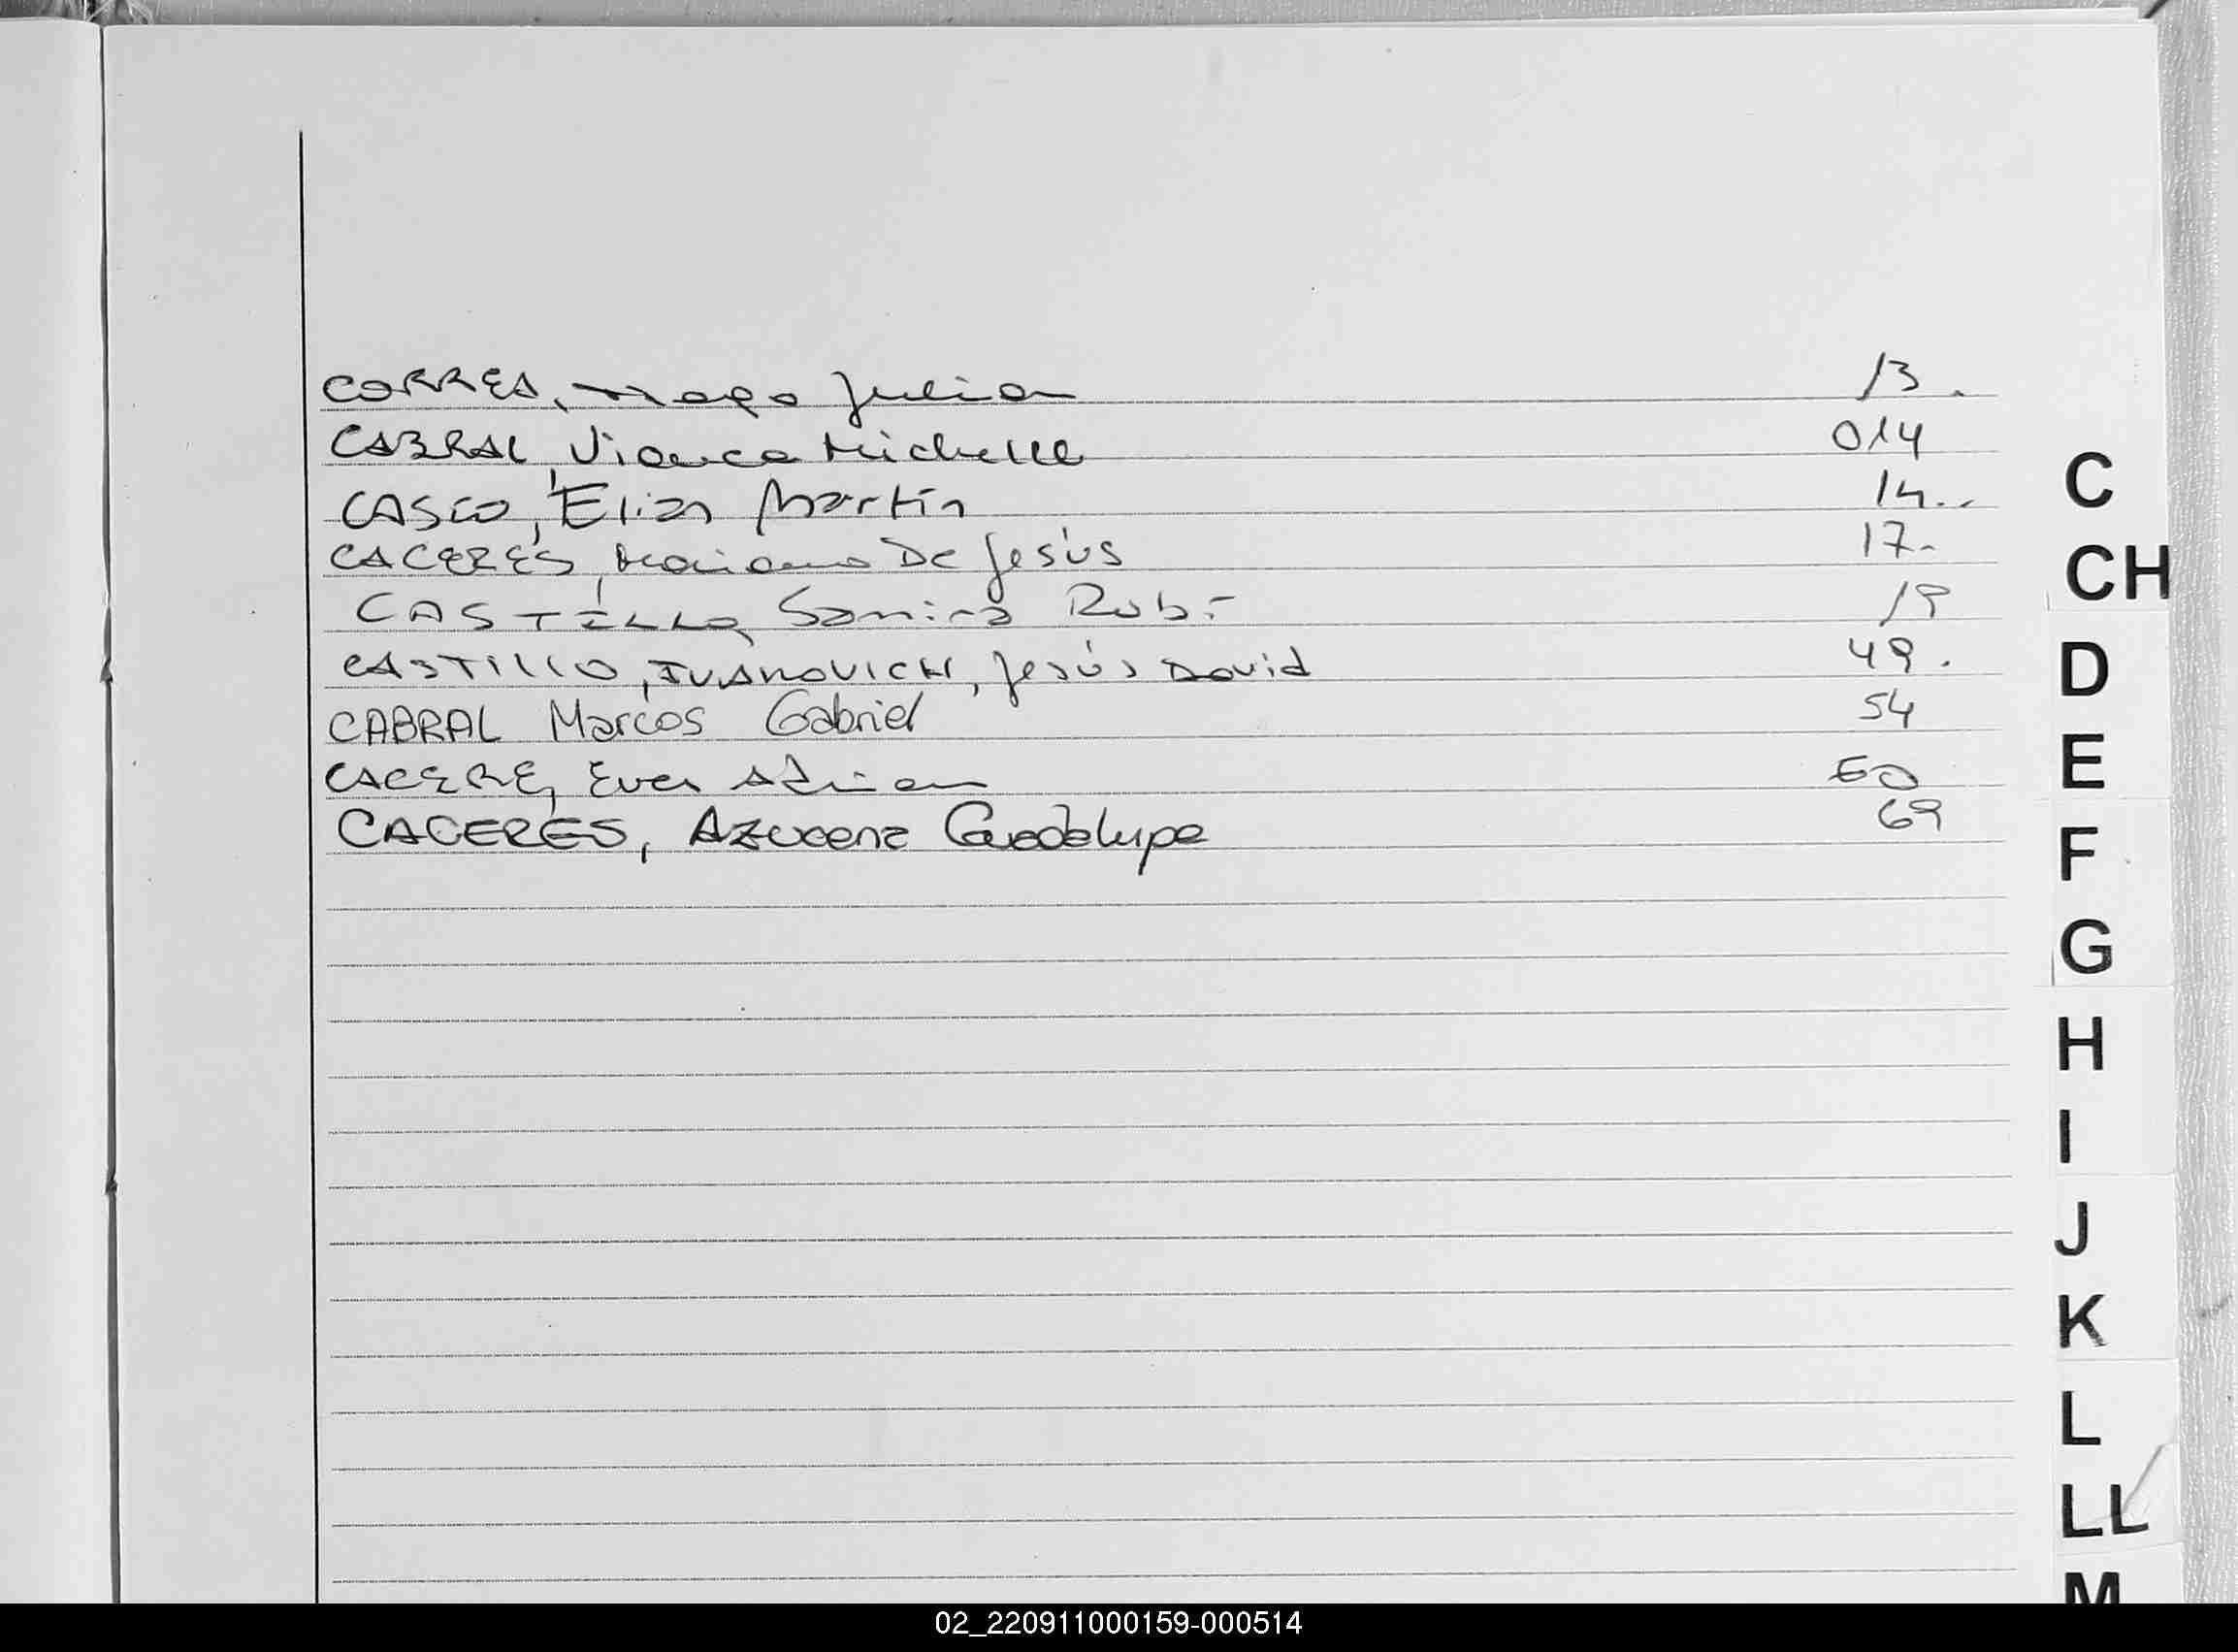 CORREA, Julian 13.
CABRAL, Vianca Michelle 014
CASCO, Elian Martín 14..
CACERES, Mariano De Jesús 17.-
CASTILLO, Samira Rubi 19
CASTILLO, IVANOVICH, Jesús David 49.
CABRAL Marcos Gabriel 54
CACERE, Ever Adrian 60
CACERES, Azucena Guadelupe 69
C
CH
D
E
F
G
H
I
J
K
L
LL
M
02_220911000159-000514